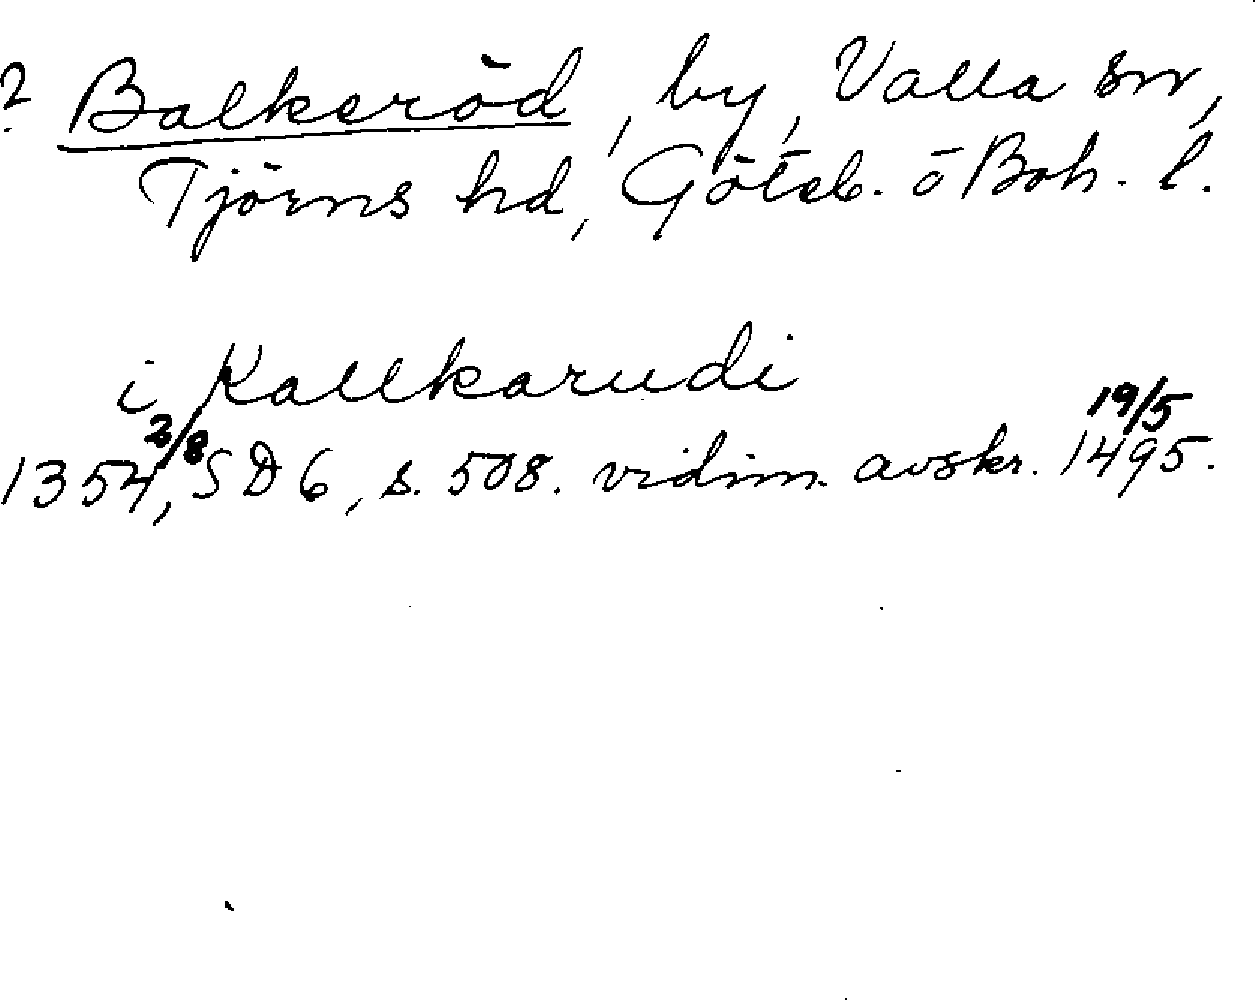 ? Balkeröd, by, Valla sn,
Tjörns hd, Göteb. o Boh. l.
i Kallkarudi
1354 2/8, SD 6, s. 508. vidim. avskr. 1495 19/5.